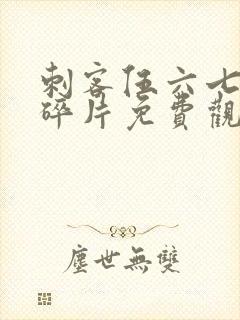 刺客伍六七
碎片免費觀
塵世無雙